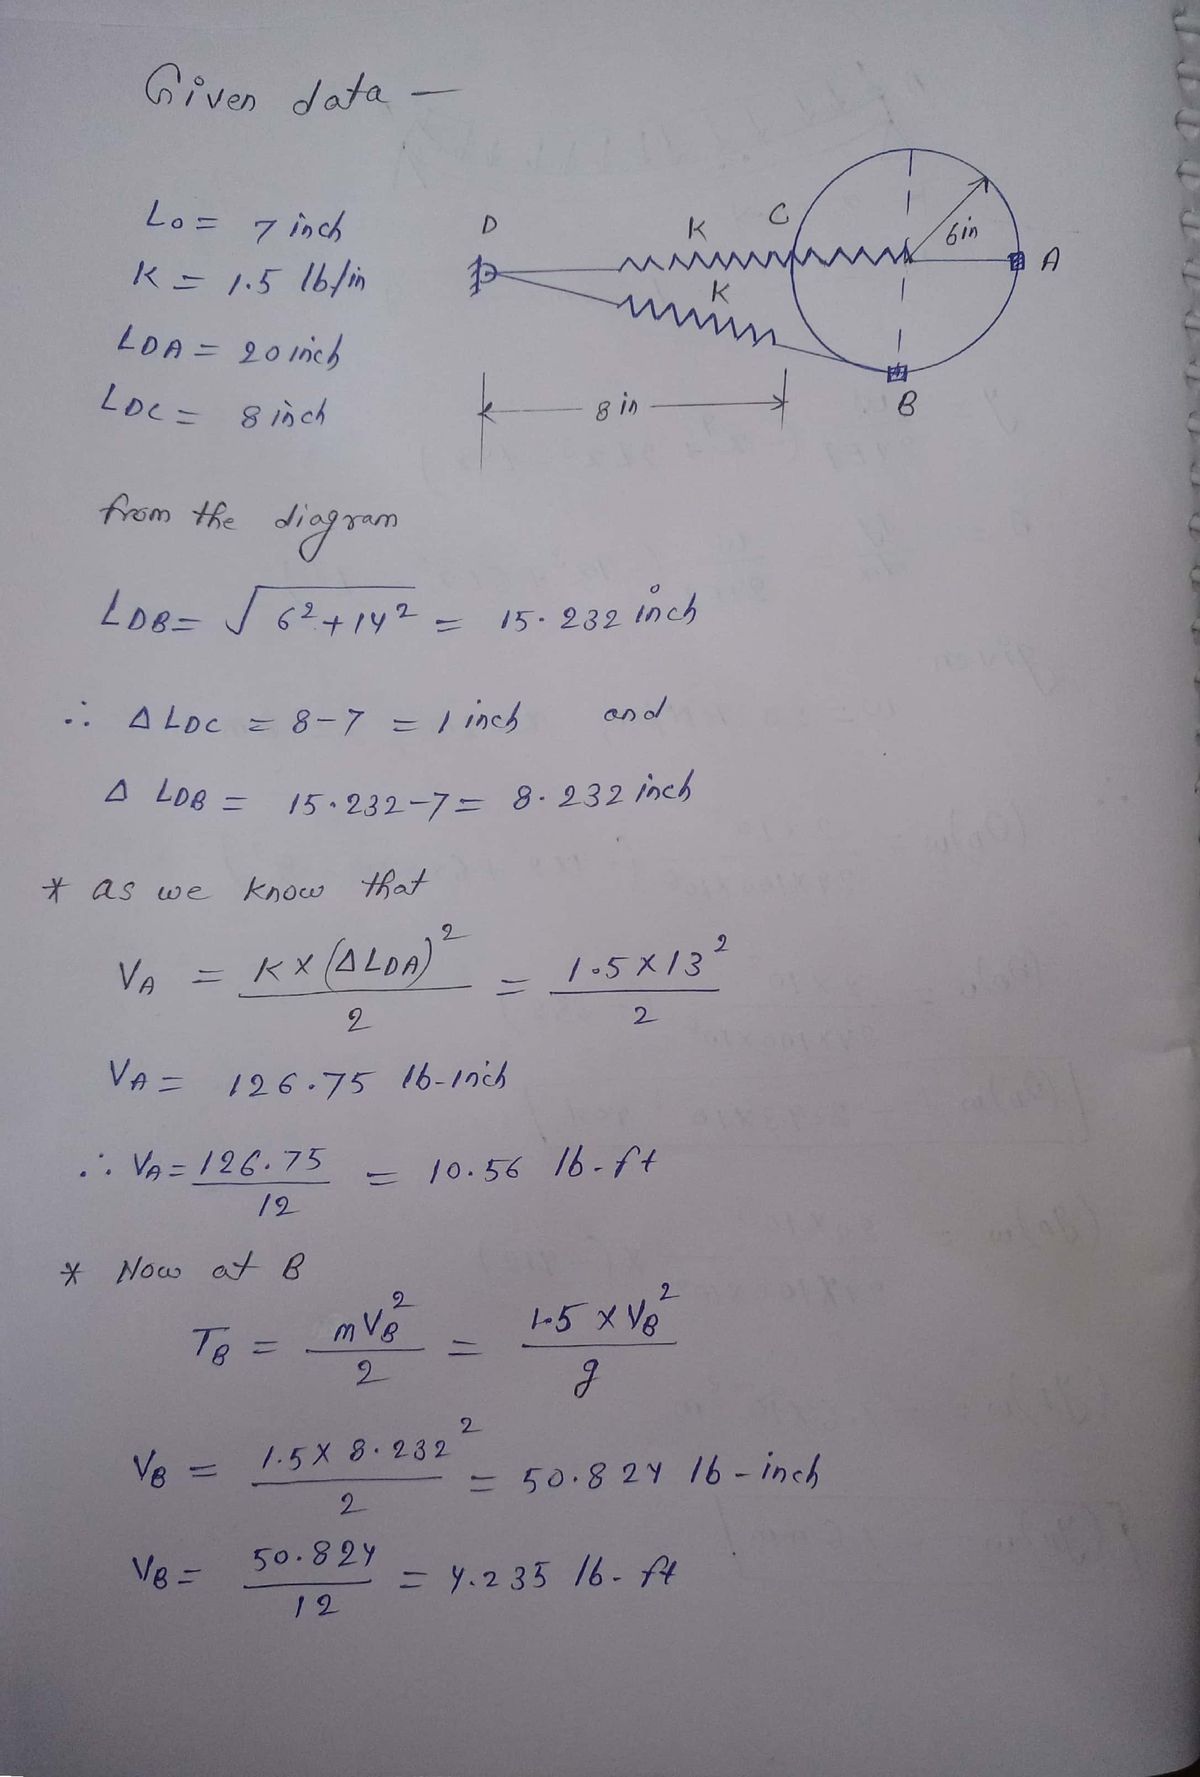 Given data —
L₀ = 7 inch
K = 1.5 lb/in
LDA = 20 inch
LDC = 8 inch
D
K
C
6in
A
K
8 in
B
from the diagram
LDB = √ 6² + 14² = 15.232 inch
∴ Δ LDC = 8 - 7 = 1 inch and
Δ LDB = 15.232 - 7 = 8.232 inch
* as we know that
VA = K × (Δ LDA)² / 2 = 1.5 × 13² / 2
VA = 126.75 lb-inch
∴ VA = 126.75 / 12 = 10.56 lb-ft
* Now at B
TB = mVB² / 2 = 1.5 × VB² / g
VB = 1.5 × 8.232² / 2 = 50.824 lb-inch
VB = 50.824 / 12 = 4.235 lb-ft